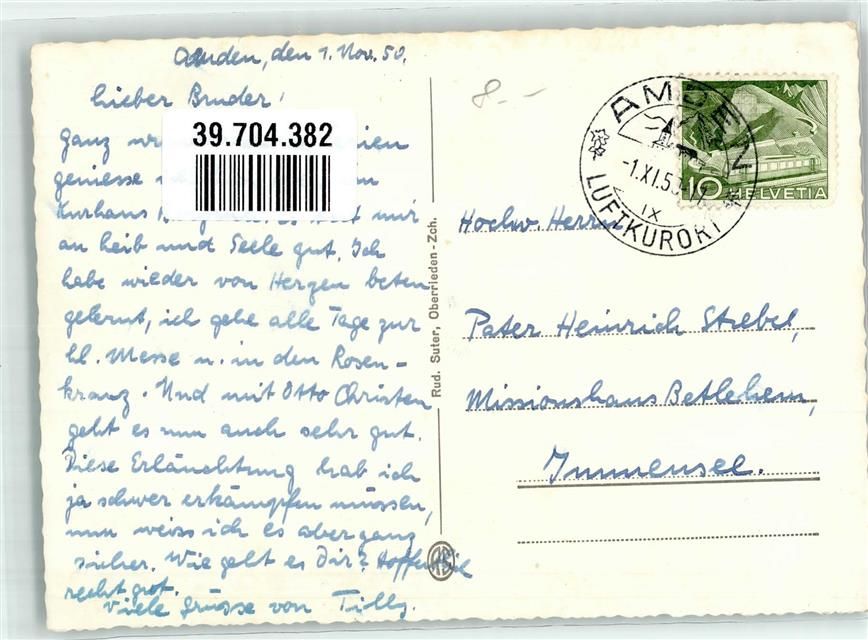 Amden, den 1. Nov. 50.
Lieber Bruder!
Ganz
geniesse
Kurhaus mir
an Leib und Seele gut. Ich
habe wieder von Herzen beten
gelernt, ich gehe alle Tage zur
hl. Messe u. in den Rosen-
kranz. Und mit Otto Christen
geht es nun auch sehr gut.
Diese Erläuchtung hab ich
ja schwer erkämpfen müssen,
nun weiss ich es aber ganz
sicher. Wie geht es Dir? Hoffentlich
recht gut.
Viele Grüsse von Tilly.
39.704.382
Rud. Suter, Oberrieden-Zch.
RS
8.-
AMDEN
-1.XI.50
IX
LUFTKURORT
10 HELVETIA
Hochw. Herrn
Pater Heinrich Strebel,
Missionshaus Bethlehem,
Immensee.